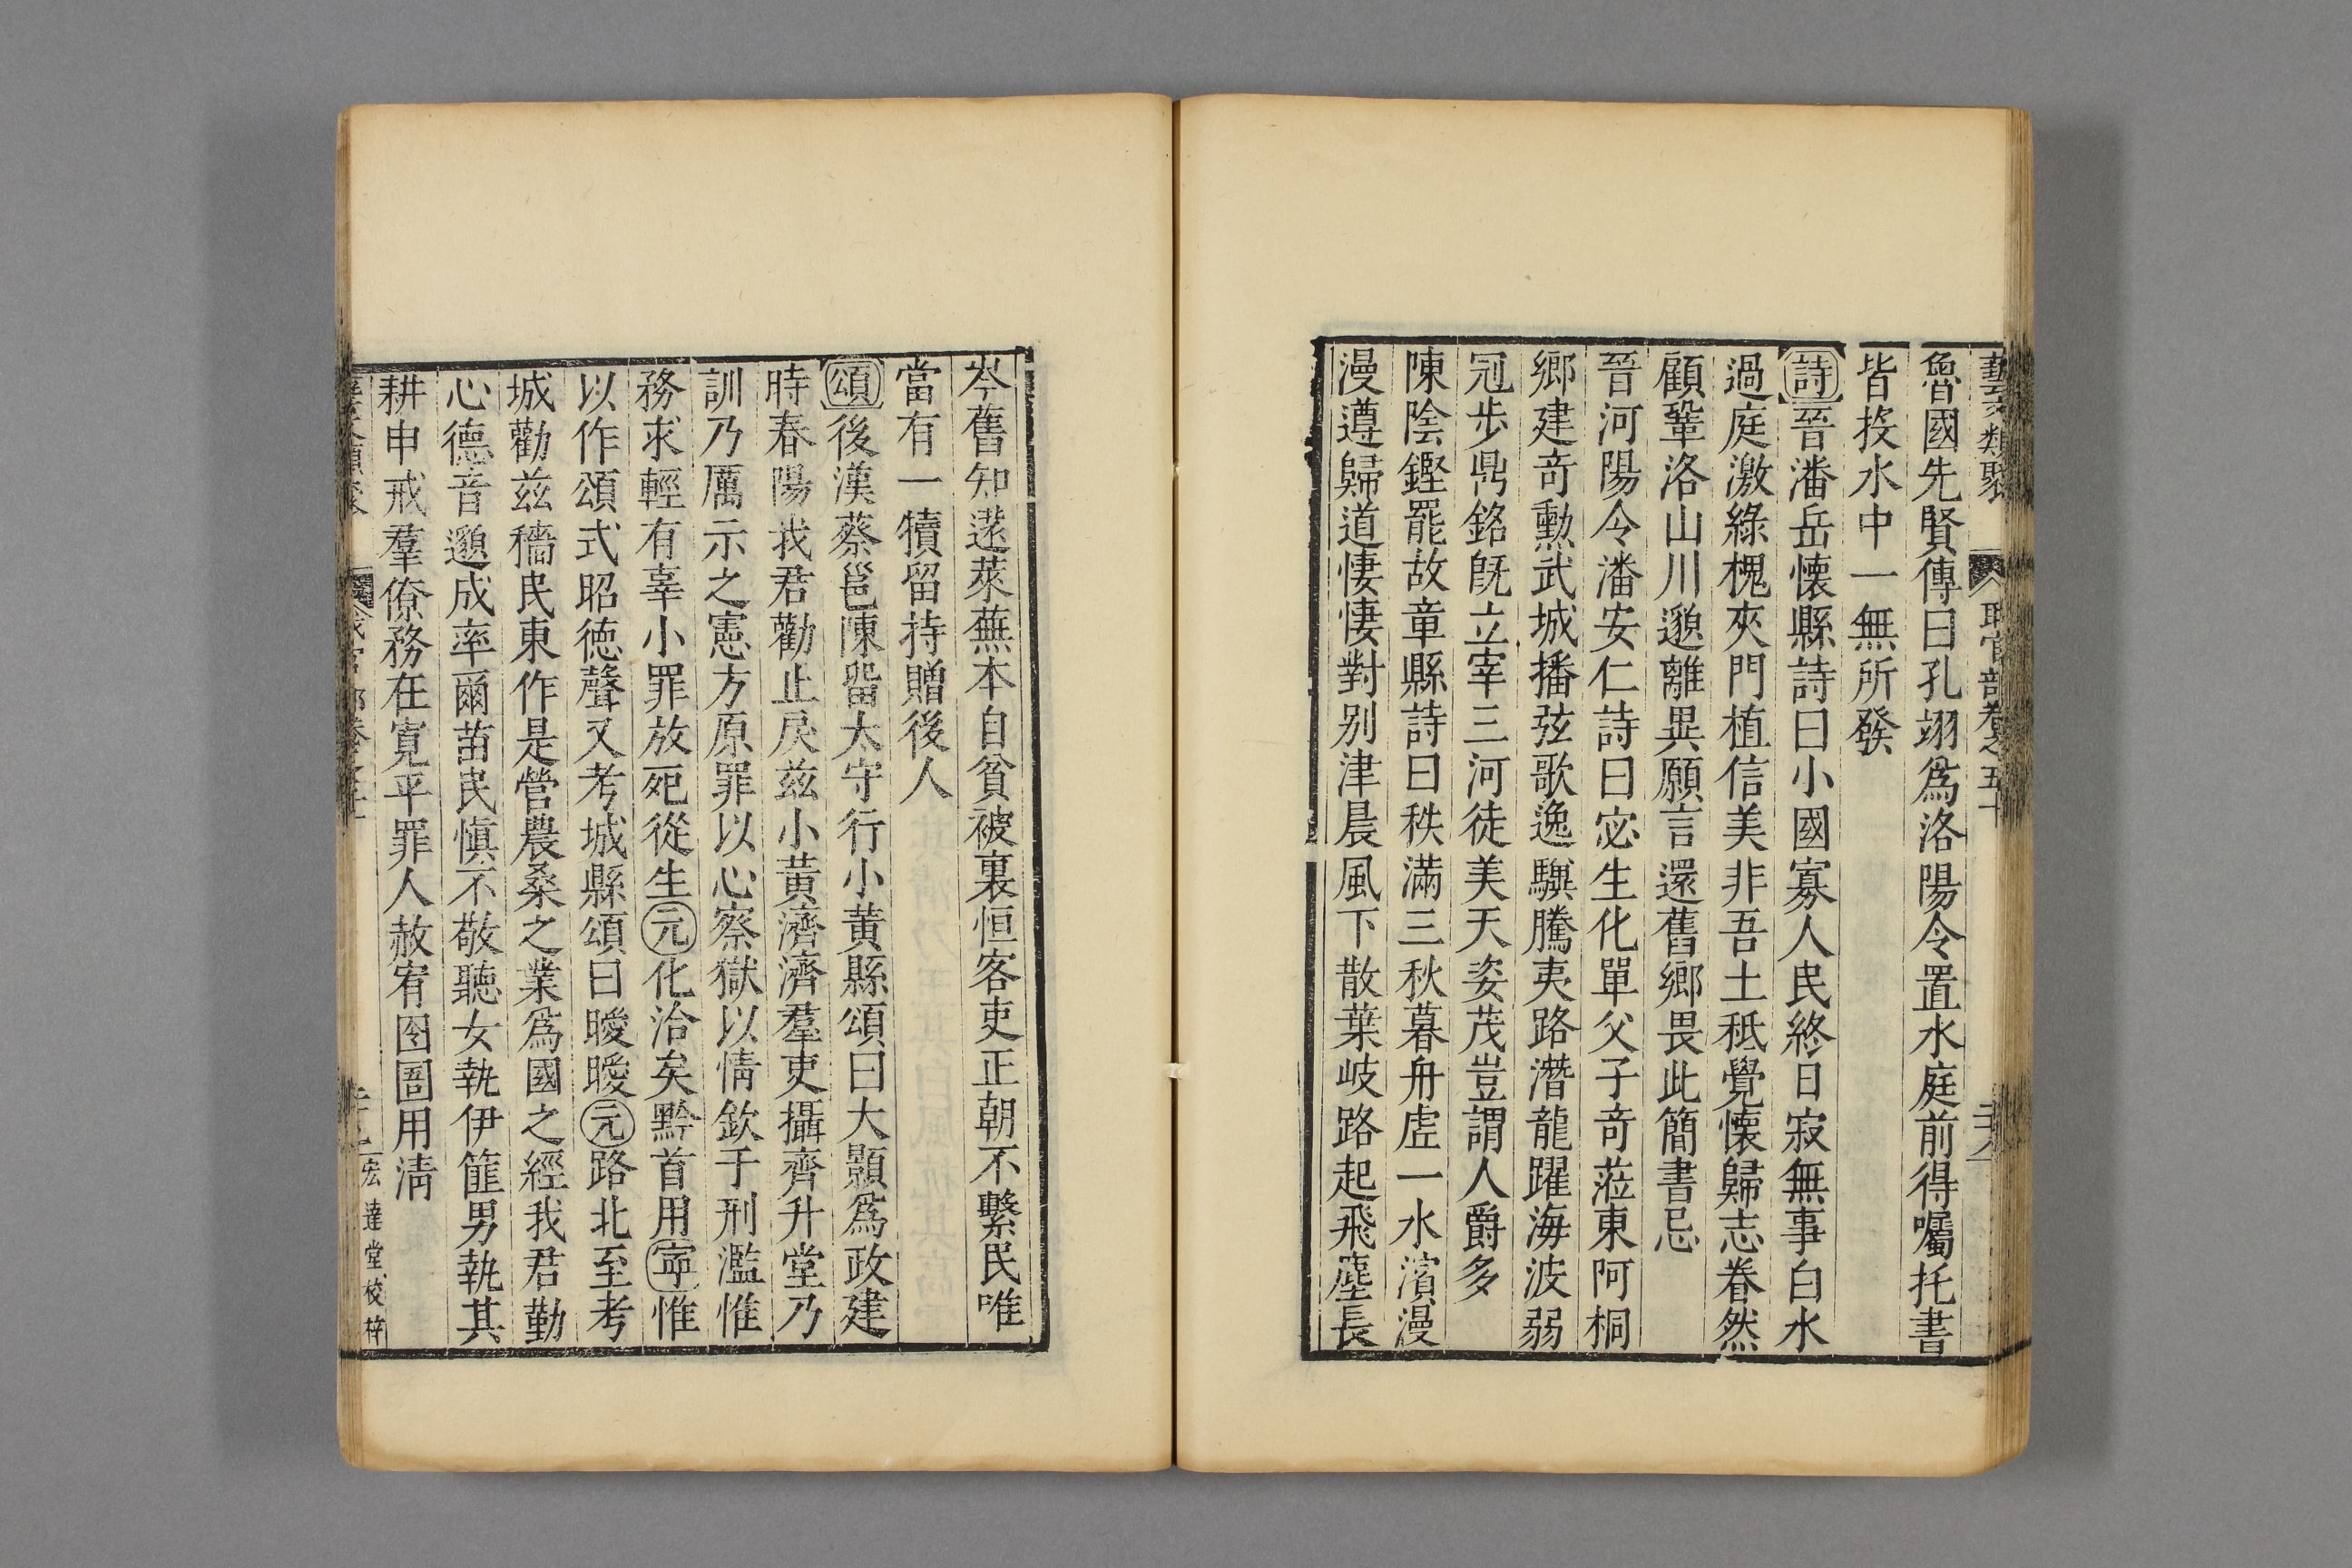 藝文類聚 職官部卷之五十 二十八
魯國先賢傳曰孔翊爲洛陽令置水庭前得囑托書
皆投水中一無所發
詩晉潘岳懷縣詩曰小國寡人民終日寂無事白水
過庭激綠槐夾門植信美非吾土秪覺懷歸志眷然
顧鞏洛山川邈離異願言還舊鄉畏此簡書忌
晉河陽令潘安仁詩曰宓生化單父子奇蒞東阿桐
鄉建奇勳武城播弦歌逸驥騰夷路潛龍躍海波弱
冠步鼎銘旣立宰三河徒美天姿茂豈謂人爵多
陳陰鏗罷故章縣詩曰秩滿三秋暮舟虛一水濱漫
漫遵歸道悽悽對别津晨風下散葉岐路起飛塵長
岑舊知遠萊蕪本自貧被裏恒客吏正朝不繫民唯
當有一犢留持贈後人
頌後漢蔡邕陳留太守行小黃縣頌曰大顥爲政建
時春陽我君勸止戾兹小黃濟濟羣吏攝齊升堂乃
訓乃厲示之憲方原罪以心察獄以情欽于刑濫惟
務求輕有辜小罪放死從生元化洽矣黔首用寧惟
以作頌式昭德聲又考城縣頌曰曖曖元路北至考
城勸兹穡民東作是營農桑之業爲國之經我君勤
心德音邈成率爾苗民愼不敬聽女執伊筐男執其
耕申戒羣僚務在寬平罪人赦宥囹圄用清
宏達堂校梓